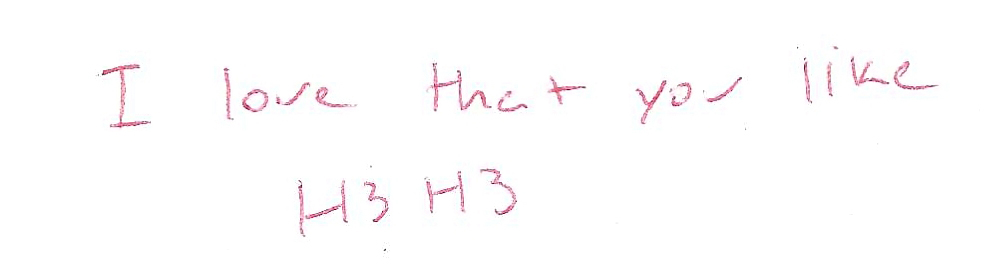 I love that you like
H3 H3